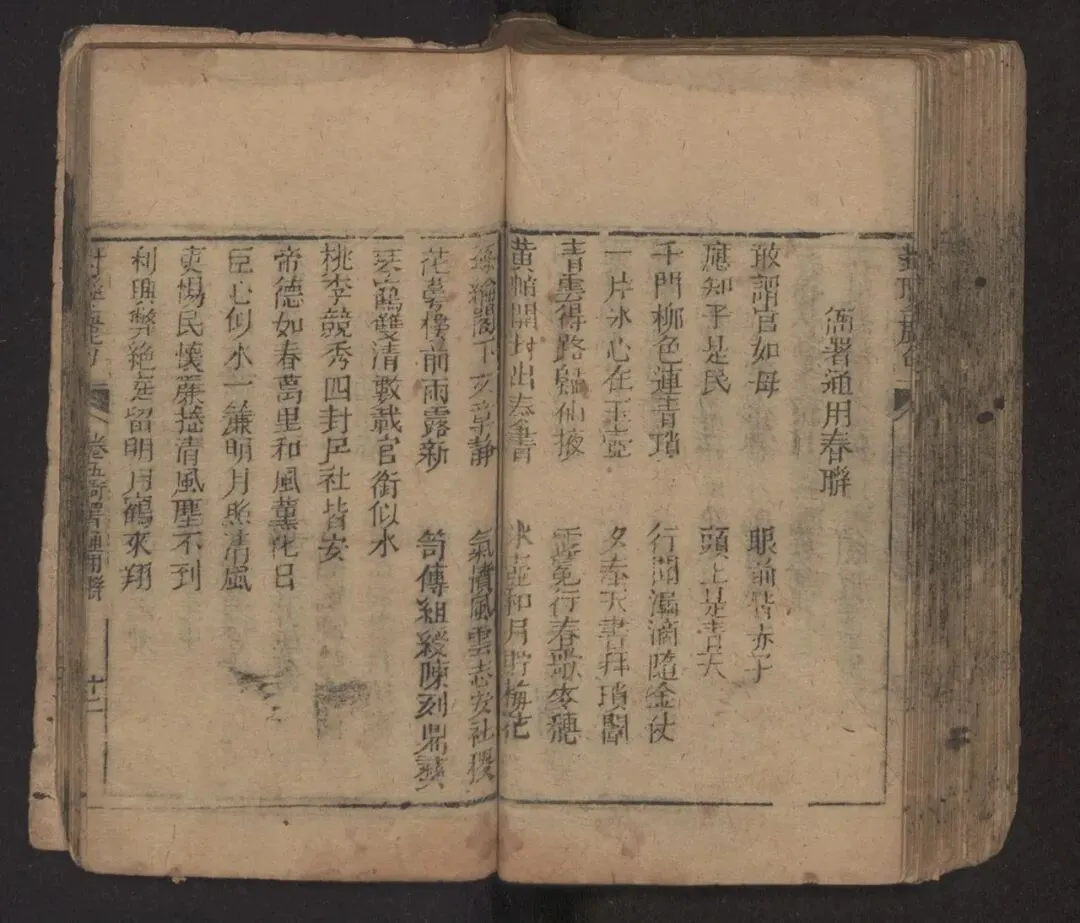 衙署通用春聯
敢謂官如母 眼前皆赤子
應知予是民 頭上是青天
千門柳色連青瑣 行間漏滴隨金仗
一片冰心在玉壺 夕奉天書拜瑣闈
青雲得路臨仙掖 行春歌麥穗
黃帕開封出奏書 冰壺和月貯梅花
綸閣下文章靜 氣憤風雲志安社稷
花萼樓前雨露新 笥傳組綬陳列鼎彝
琴鶴雙清數載官銜似水
桃李競秀四封民社皆安
帝德如春萬里和風薰化日
臣心似水一簾明月照清風
吏惕民懷簾捲清風塵不到
利興弊絕庭留明月鶴來翔
卷五衙署通用聯 十二